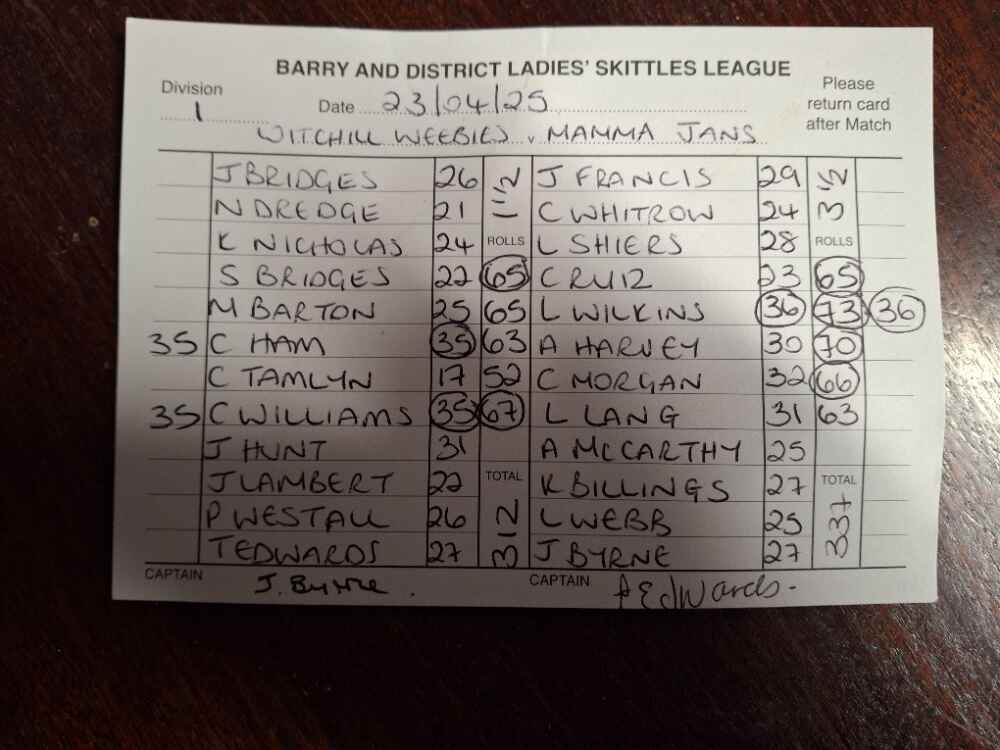 BARRY AND DISTRICT LADIES' SKITTLES LEAGUE
Division 1 Date 23/04/25 Please return card after Match
WITCHILL WEEBIES v MAMMA JANS
J BRIDGES 26 1 1/2 J FRANCIS 29 3 1/2
N DREDGE 21 C WHITROW 24
K NICHOLAS 24 ROLLS L SHIERS 28 ROLLS
S BRIDGES 22 65 C RUIZ 23 65
M BARTON 25 65 L WILKINS 36 73 36
35 C HAM 35 63 A HARVEY 30 70
C TAMLYN 17 52 C MORGAN 32 66
35 C WILLIAMS 35 67 L LANG 31 63
J HUNT 31 A MCCARTHY 25
J LAMBERT 22 TOTAL K BILLINGS 27 TOTAL
P WESTALL 26 312 L WEBB 25 337
T EDWARDS 27 J BYRNE 27
CAPTAIN J. Byrne . CAPTAIN A Edwards -